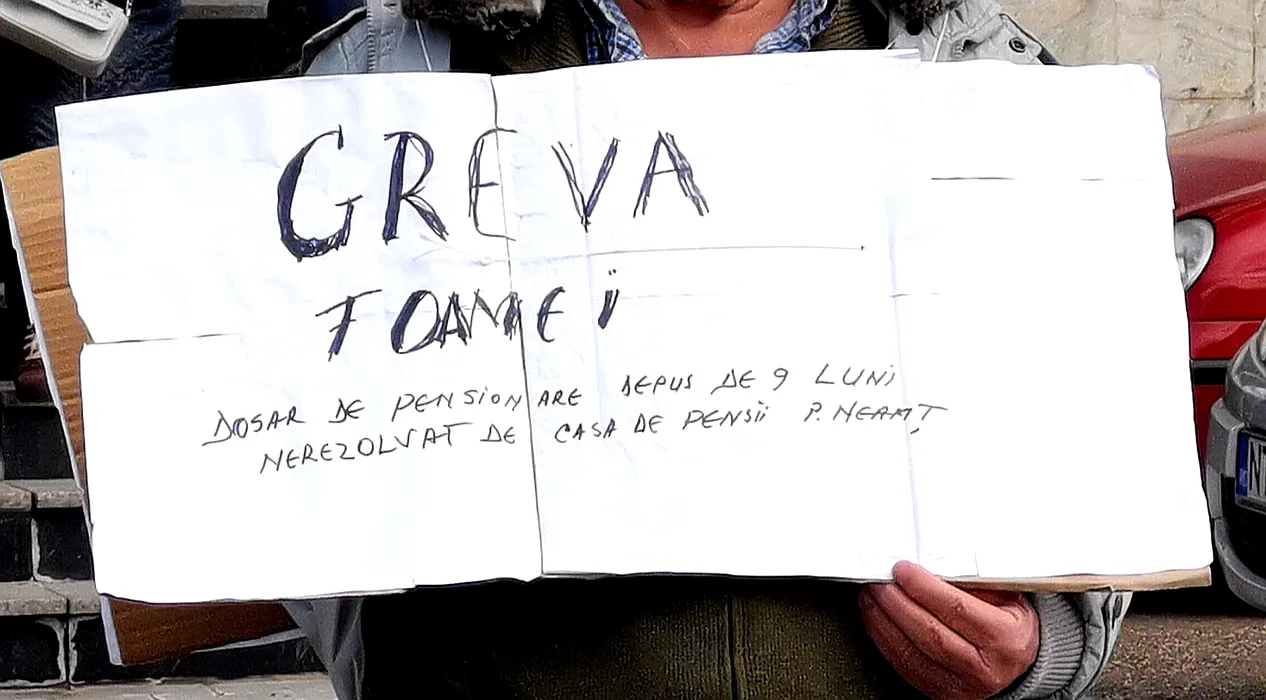 GREVA
FOAMEI
DOSAR DE PENSIONARE DEPUS DE 9 LUNI
NEREZOLVAT DE CASA DE PENSII P. NEAMȚ
NT